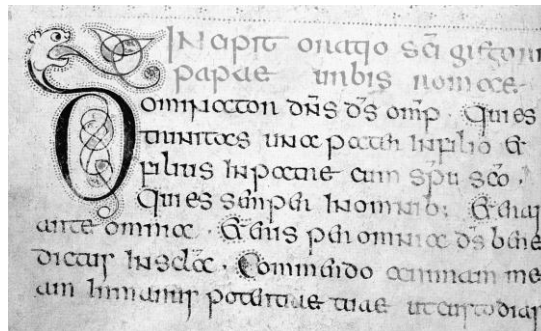 INcipit oratio sc̄i gregorii
papae urbis romae
Dominator dn̄s d̄s om̄p. Qui es
trinitas una pater in filio &
filius in patre cum sp̄u sc̄o.
Qui es semper in omnib; & eras
ante omnia. & eris per omnia d̄s bene
dictus in scl̄a. Commendo animam me
am in manus potentiae tuae ut custodias